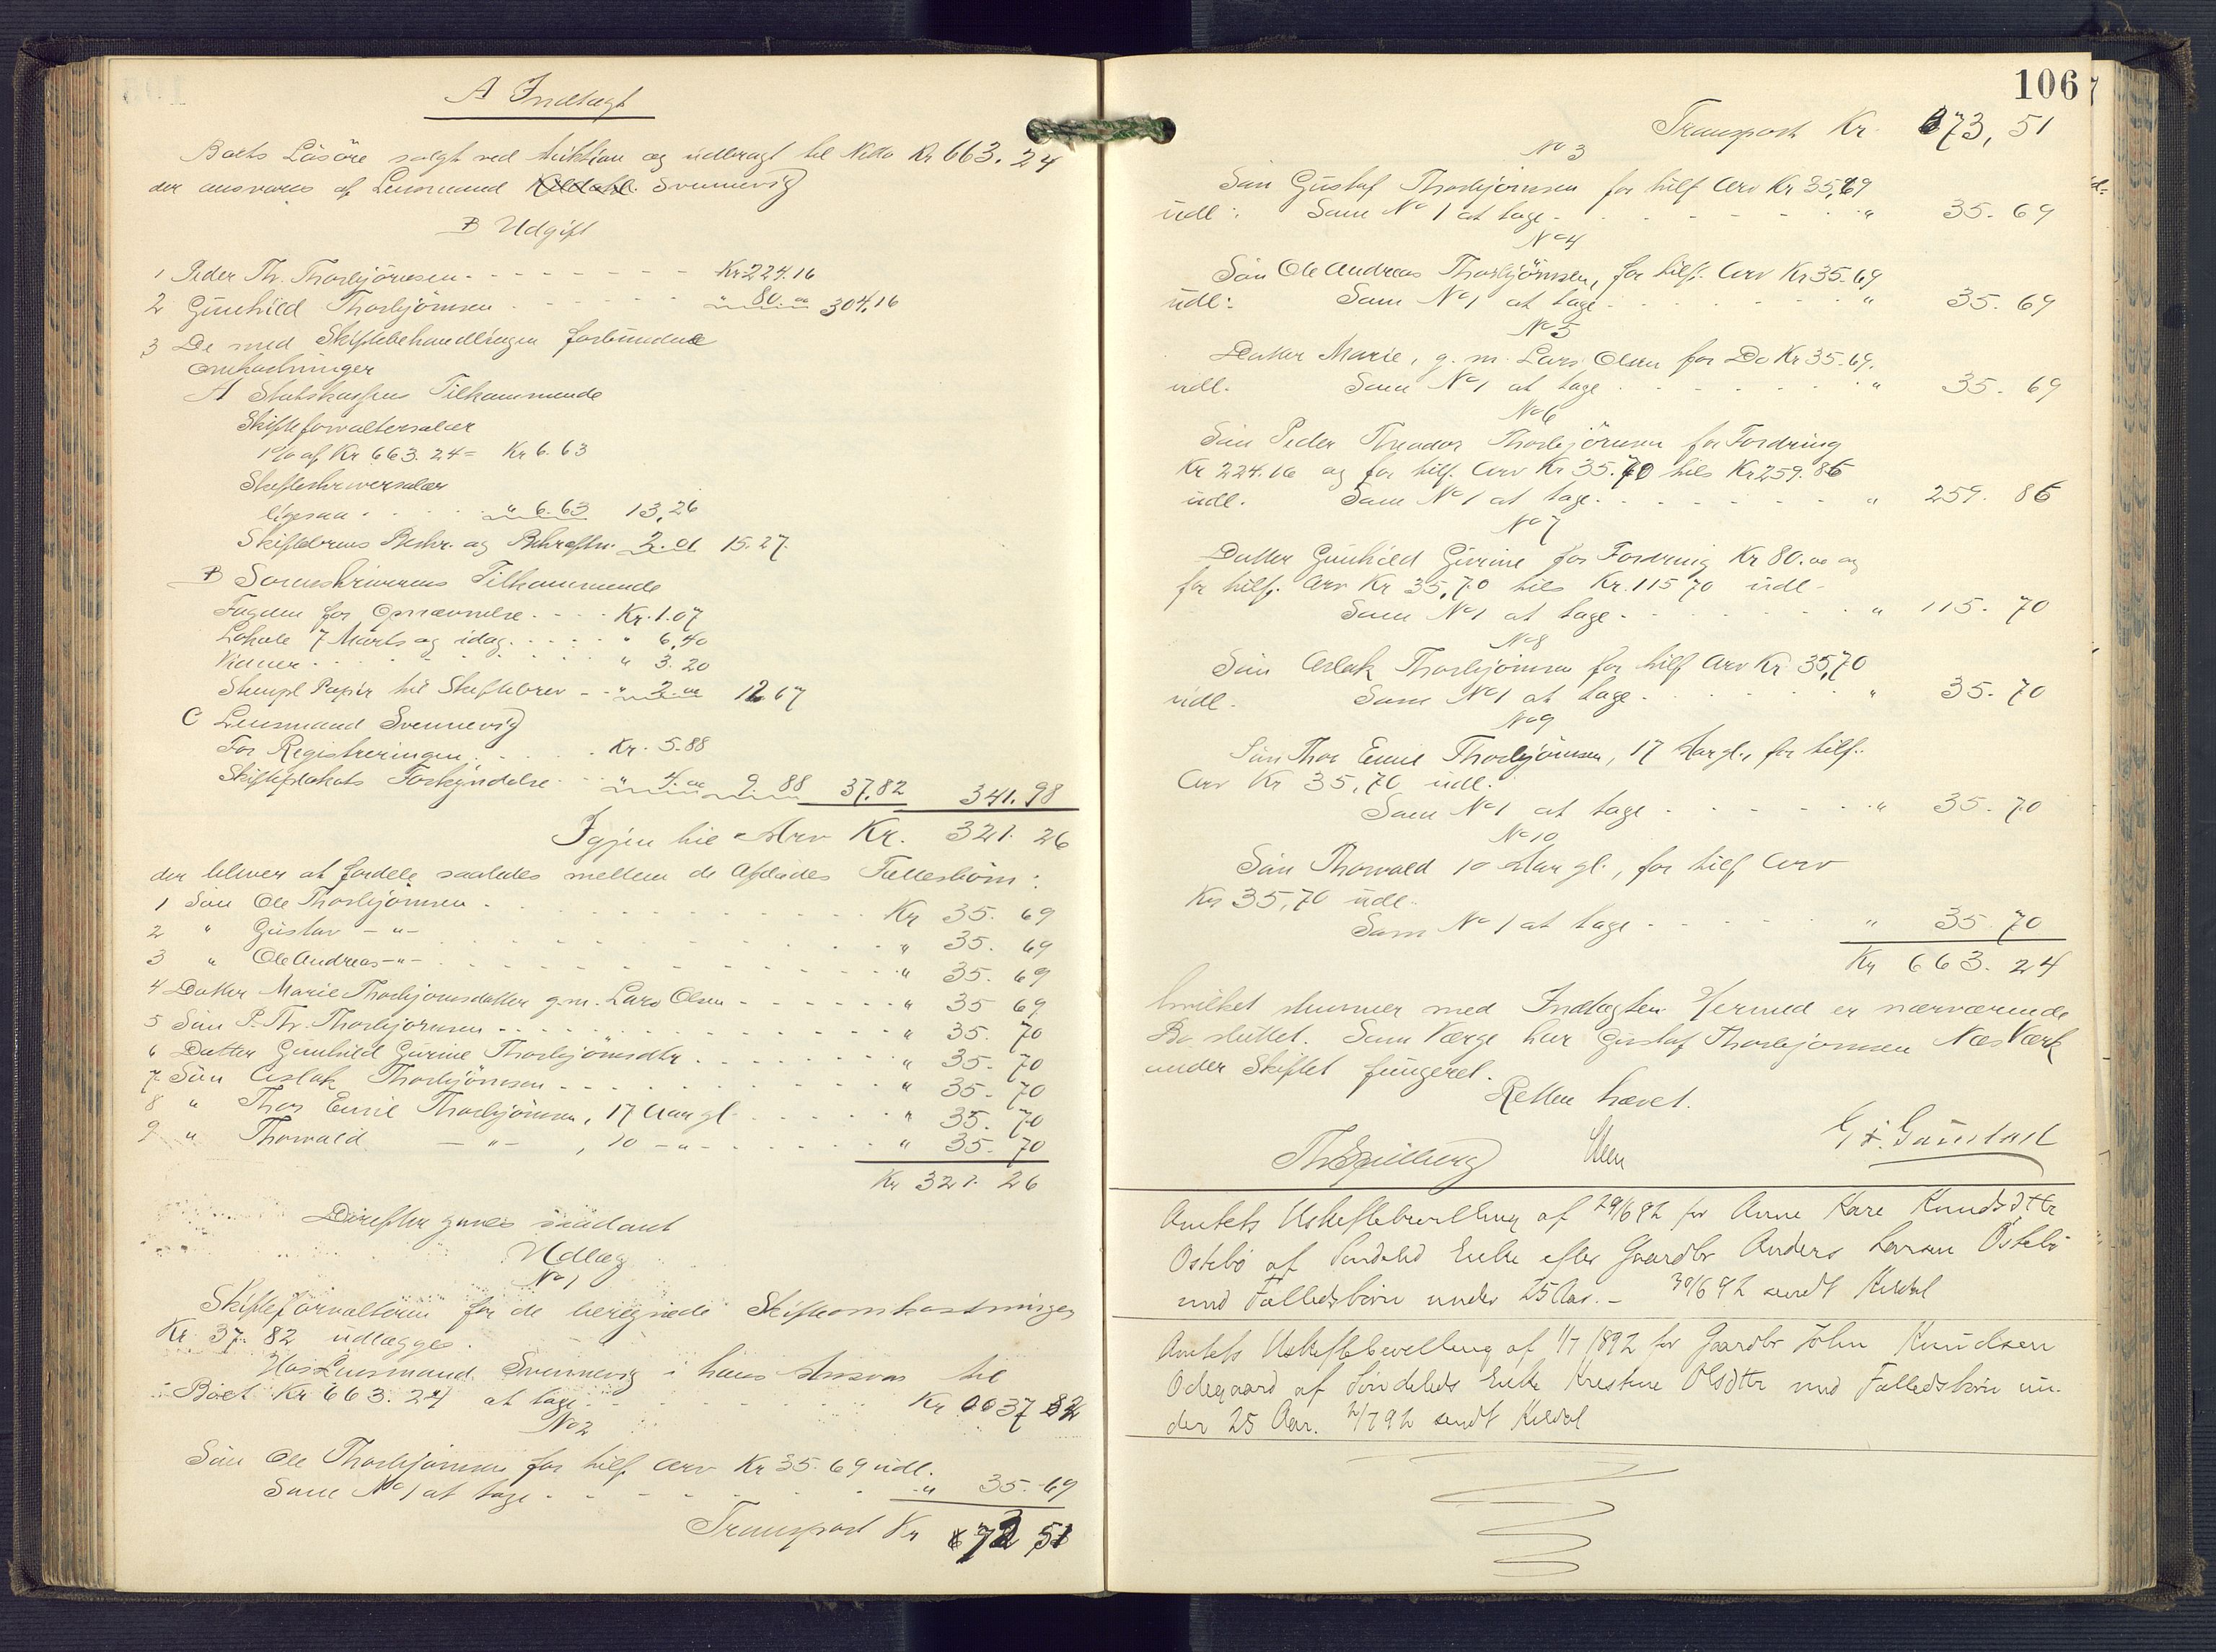 A Indtægt
Boets Løsøre solgt ved Auktion og udbragt til Netto Kr 663. 24
der ansvares af Lensmand Svennevig
B Udgift
1 Peder Th. Thorbjörnsen - - - Kr 224.16
2 Günhild Thorbjörnsen - - - " 80. oo 304,16
3 De med Skiftebehandlingen forbundne
Omkostninger
A Statskassens Tilkommende
Skifteforvaltersalær
1% af Kr 663. 24 = Kr 6. 63
Skifteskriversalær
ligesaa - - - " 6. 63 13,26
Skiftebrevs Beskr. og Bekræftn. 2. 01 15. 27.
B Sorenskriverens Tilkommende
Fogden for Opnævnelse - - - Kr. 1.07
Lokale 7 Marts og idag - - - " 6,40
Vidner - - - " 3. 20
Stempl Papir til Skiftebrev - - " 2. oo 12 67
C Lensmand Svennevig
For Registreringen - - - Kr. 5. 88
Skifteplakats Forkyndelse - - " 4. oo 9. 88 37,82 341. 98
Igjen til Arv Kr. 321. 26
der bliver at fordele saaledes mellem de Afdødes Fællesbørn:
1 Søn Ole Thorbjörnsen - - - Kr 35. 69
2 " Gustav - " - - - - " 35. 69
3 " Ole Andreas - " - - - - " 35. 69
4 Datter Marie Thorbjörnsdatter g. m. Lars Olsen - - - " 35 69
5 Søn P. Th. Thorbjörnsen - - - " 35. 70
6 Datter Günhild Gurine Thorbjörnsdtr - - - " 35. 70
7. Søn Aslak Thorbjörnsen - - - " 35. 70
8 " Thor Emil Thorbjörnsen, 17 Aar gl - - - " 35. 70
9 " Thorvald - " - , 10 - " - - - - " 35. 70
Kr 321. 26
Derefter gjøres saadant
Udlæg
No 1
Skifteforvalteren for de beregnede Skifteomkostninger
Kr. 37. 82 udlægges.
Hos Lensmand Svennevig i hans Ansvar til
Boet Kr 663. 24 at tage - - - Kr 37 82
No 2
Søn Ole Thorbjörnsen for tilf. Arv Kr 35. 69 udl.
Som No 1 at tage - - - " 35. 69
Transport Kr 73 51
106
Transport Kr. 73, 51
No 3
Søn Gustaf Thorbjörnsen for tilf Arv Kr 35,69
udl: Som No 1 at tage - - - " 35. 69
No 4
Søn Ole Andreas Thorbjörnsen, for tilf. Arv Kr 35. 69
udl: Som No 1 at tage - - - " 35. 69
No 5
Datter Marie, g. m. Lars Olsen for Do Kr 35. 69.
udl. Som No 1 at tage - - - " 35. 69
No 6
Søn Peder Theodor Thorbjörnsen for Fordring
Kr 224. 16 og for tilf. Arv Kr 35. 70 tils Kr 259. 86
udl. Som No 1 at tage - - - " 259. 86
No 7
Datter Günhild Gurine for Fordring Kr 80. oo og
for tilf. Arv Kr 35,70 tils Kr. 115 70 udl -
Som No 1 at tage - - - " 115. 70
No 8
Søn Aslak Thorbjörnsen for tilf Arv Kr 35,70
udl. Som No 1 at tage - - - " 35. 70
No 9
Søn Thor Emil Thorbjörnsen, 17 Aar gl., for tilf.
Arv Kr 35,70 udl.
Som No 1 at tage - - - " 35. 70
No 10
Søn Thorvald 10 Aar gl., for tilf Arv
Kr 35,70 udl.
Som No 1 at tage - - - " 35. 70
Kr 663. 24
hvilket stemmer med Indtægten. Hermed er nærværende
Bo sluttet. Som Værge har Gustaf Thorbjörnsen Næs Værk
under Skiftet fungeret.
Retten hævet.
Amtets Uskiftebevilling af 29/6 92 for Anne Kare Knudsdtr
Østebø af Søndeled Enke efter Gaardbr Anders Larsen Østebø
med Fælledsbørn under 25 Aar. - 30/6 92 sendt Kildal
Amtets Uskiftebevilling af 1/7 1892 for Gaardbr John Knudsen
Ødegaard af Søndeleds Enke Kristine Olsdtr med Fælledsbørn un-
der 25 Aar. 2/7 92 sendt Kildal